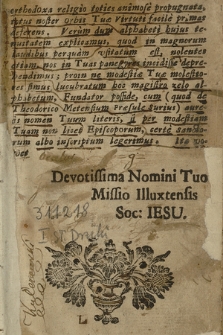 orthodoxa religio toties animosè propugnata,
totus noster orbis Tuæ Virtuti facilè primas
deferens. Verùm dum alphabeti hujus te-
nuitatem explicamus, quod in magnorum
laudibus usitatum est, nolentes
etiam, nos in Tuas panegyres incidisse depre-
hendimus; proin ne modestiæ Tuæ molestio-
res simus lucubratum hoc magistro zelo al-
phabetum, Fundator posside, cum (quod de
Theodorico Metensium Præsule furius) aure-
is nomen Tuum literis, si per modestiam
Tuam non licet Episcoporum, certè sancto-
rum albo inscriptum legerimus. Ita vo-
vet
Devotissima Nomini Tuo
Missio Illuxtensis
Soc: IESU.
311218
I
L